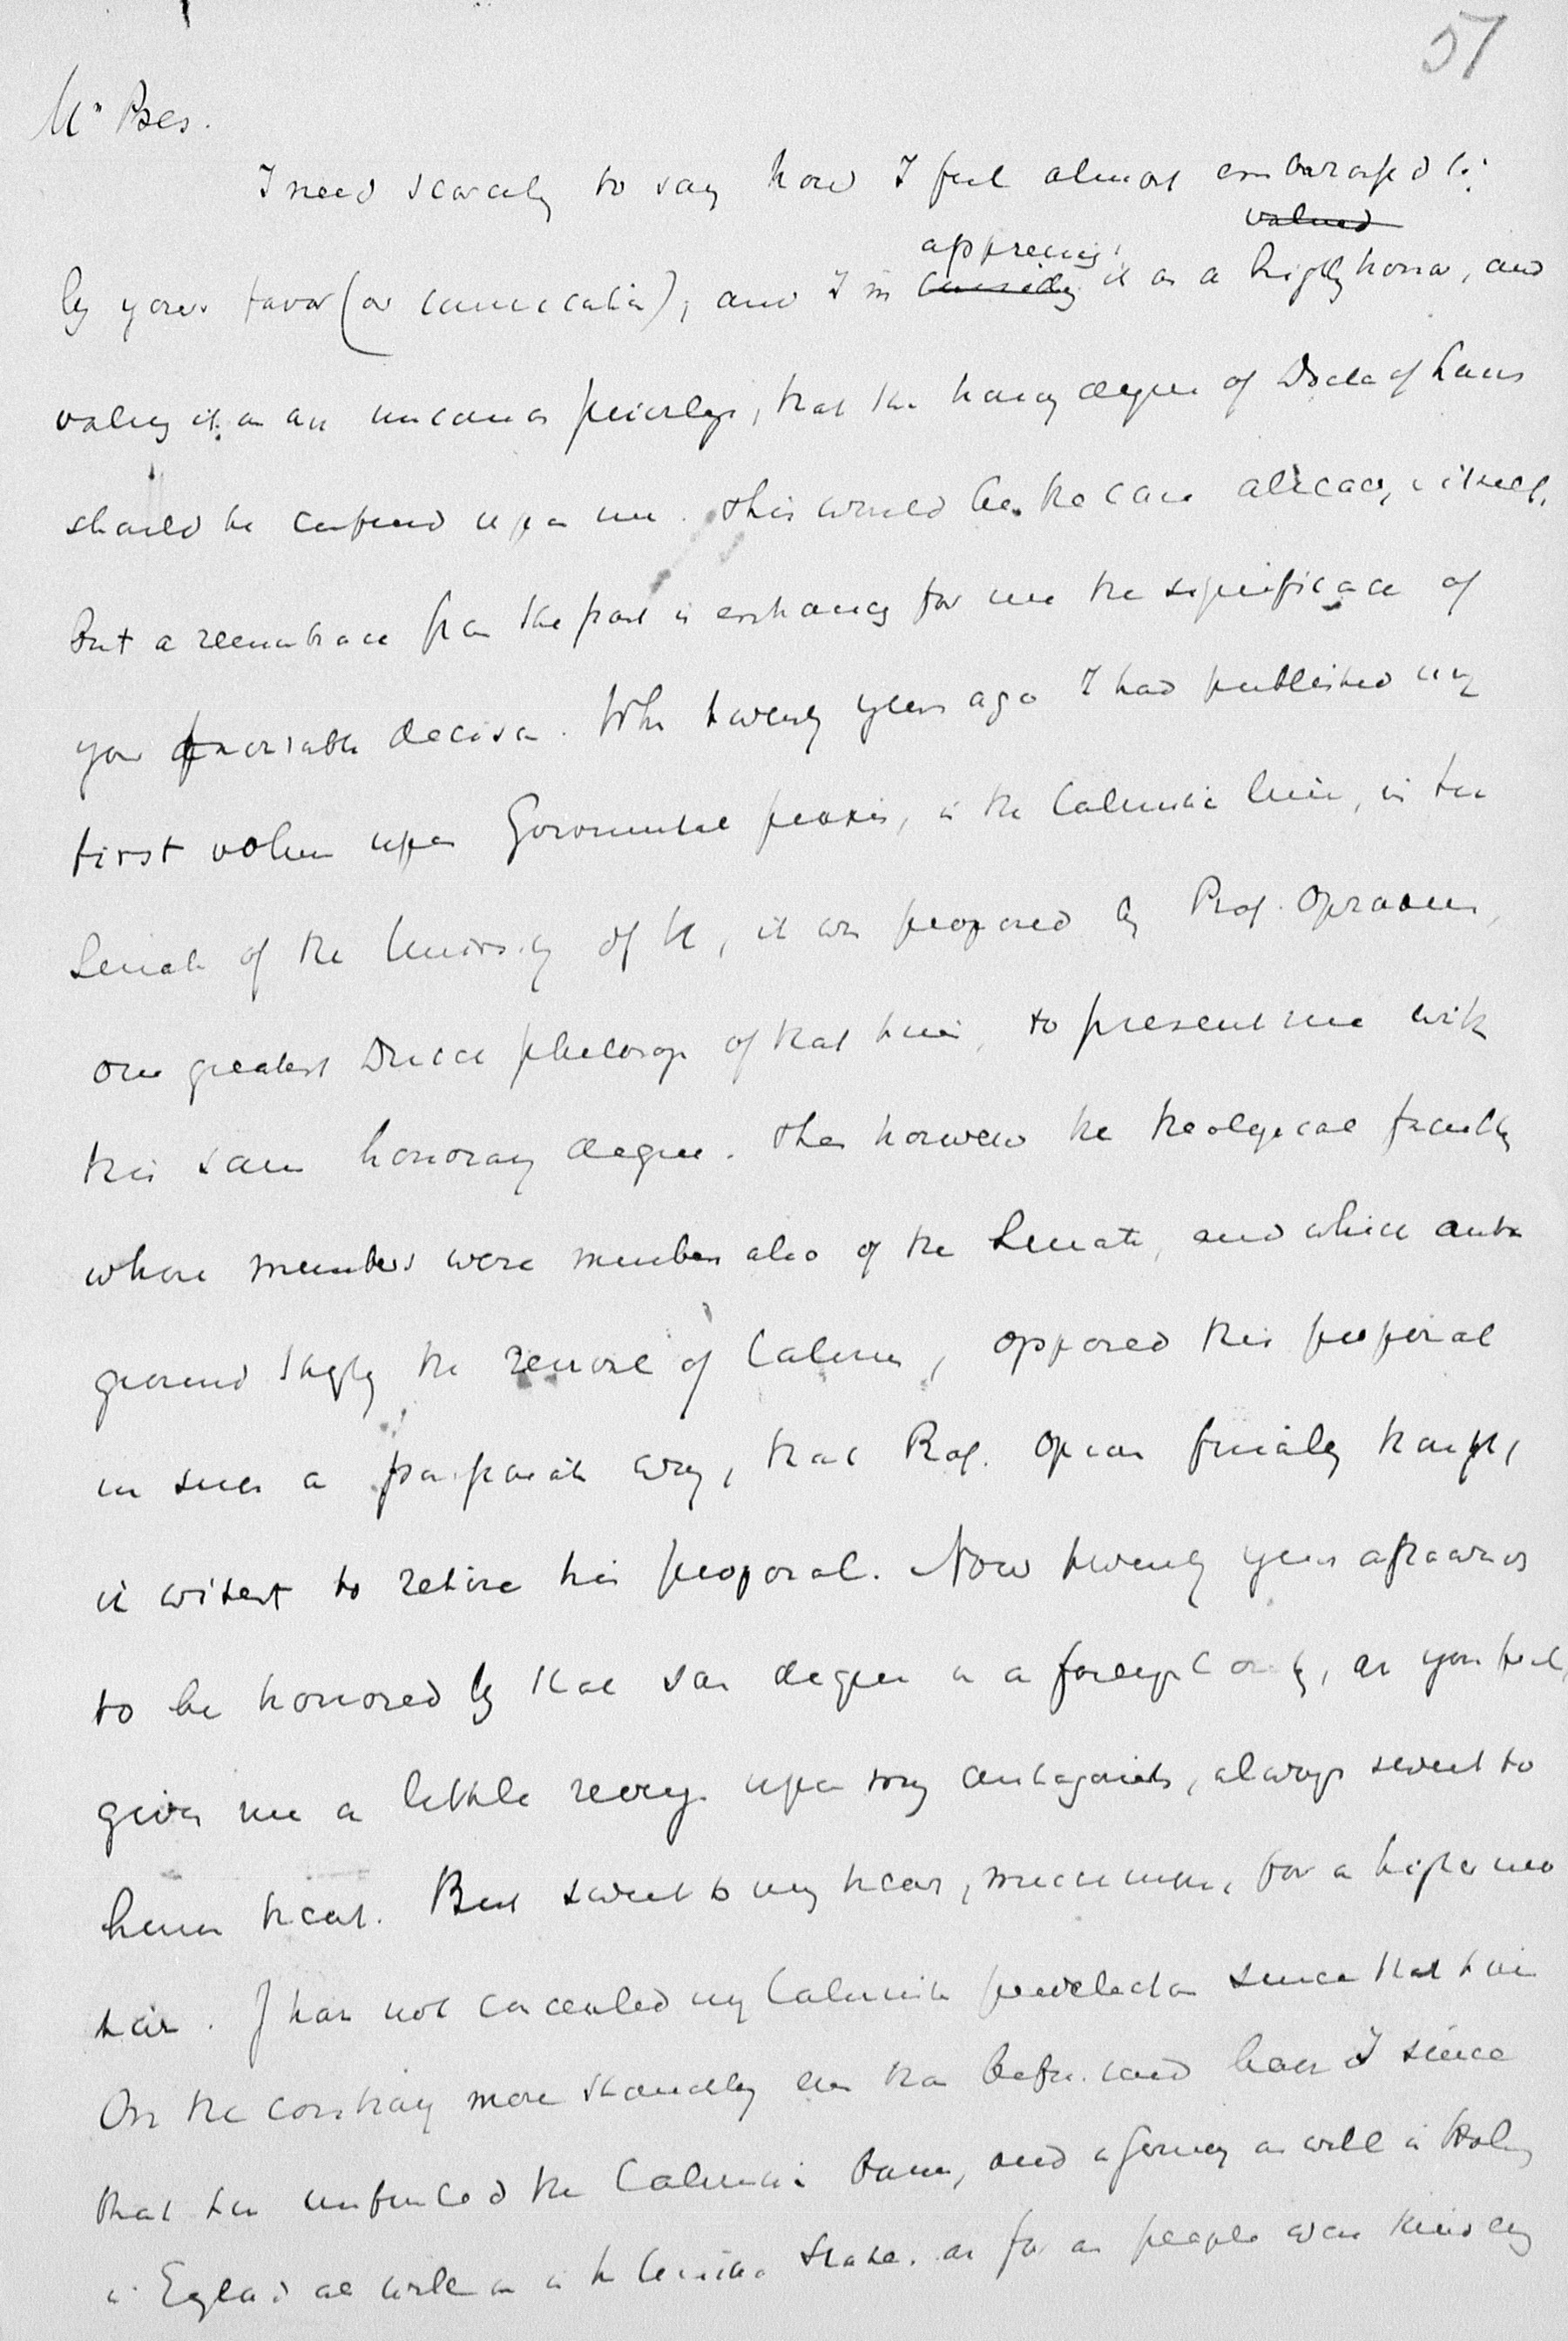 57
Mr Pres.
I need scarcely to say how I feel almost embarassed
valued
appreciã
by your favor (or ), and I'm it as a highly honor, and
valuing it as an uncomon privilege, that the honary degree of Docta of Laws
should be conferred upon me. This would be the case alrcady, i itself.
But a remembrance from the past is enhancg for me the significace of
your favoriable decision. When twenty years ago I had published my
first volum upon Govornmental praxis, in the Calvinistic line, in the
Senate of the University of U, it was proposed by Prof. Opzoomer,
our greatest Dutch philosop of that time, to present me with
this same honorary degree. Then however the theological faculty
whose members were members also of the Senate, and which
the revival of Calvin, opposed this proposal
in such a passionate way, that Prof. Opzoom finally thought
it wisest to retire his proposal. Now twenty years afterwards
to be honored by that same degree in a foreign country, as you feel,
gives me a little revenge upon my antagonists, always sweet to
human heart. But sweet to my heart, much more, for a higher
. I have not concealed my Calvinistic predelection since that time
On the contrary more staunchly even than before have I since
that time unfurled the Calvinistic baner, and in Germany as well in Holland
in England as well as in the United States. as far as people were kindly